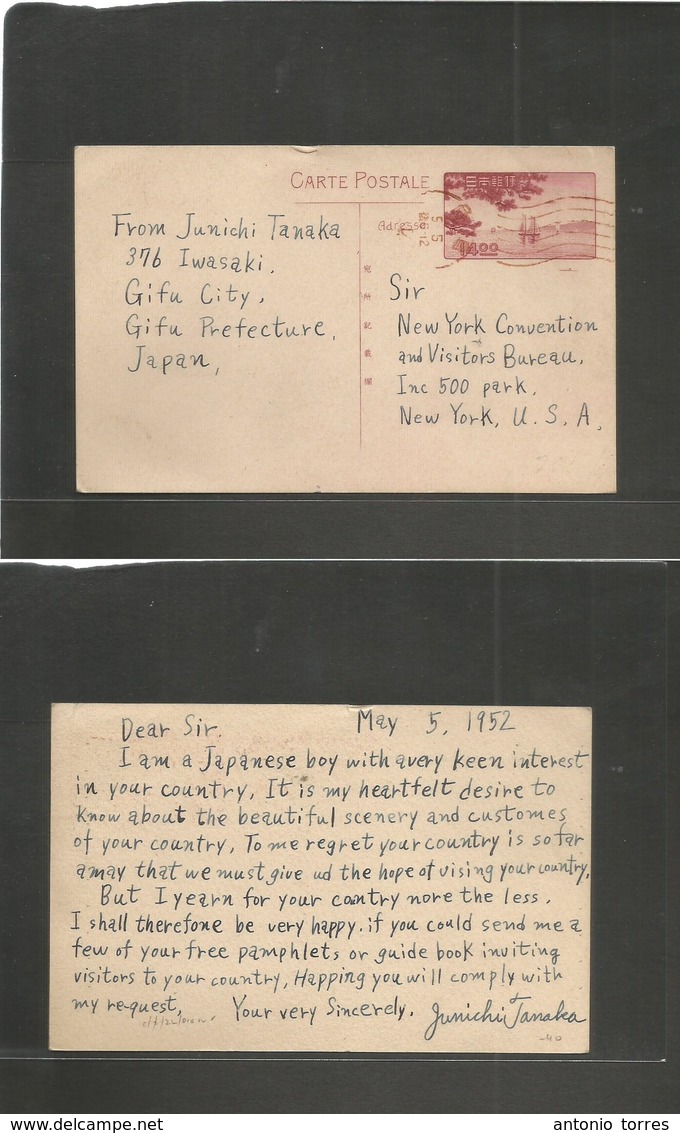 CARTE POSTALE
日本郵便
14.00
Adresse
5.5
宛所記載欄
From Junichi Tanaka
376 Iwasaki,
Gifu City,
Gifu Prefecture,
Japan,
Sir
New York Convention
and Visitors Bureau,
Inc 500 park,
New York, U. S. A,
Dear Sir. May 5, 1952
I am a Japanese boy with avery keen interest
in your country, It is my heartfelt desire to
Know about the beautiful scenery and customes
of your country, To me regret your country is so far
amay that we must give ud the hope of vising your country,
But I yearn for your contry nore the less.
I shall therefone be very happy. if you could send me a
few of your free pamphlets or guide book inviting
visitors to your country, Happing you will comply with
my re-quest, Your very Sincerely. Junichi Tanaka
-40
delcampe.net
antonio torres